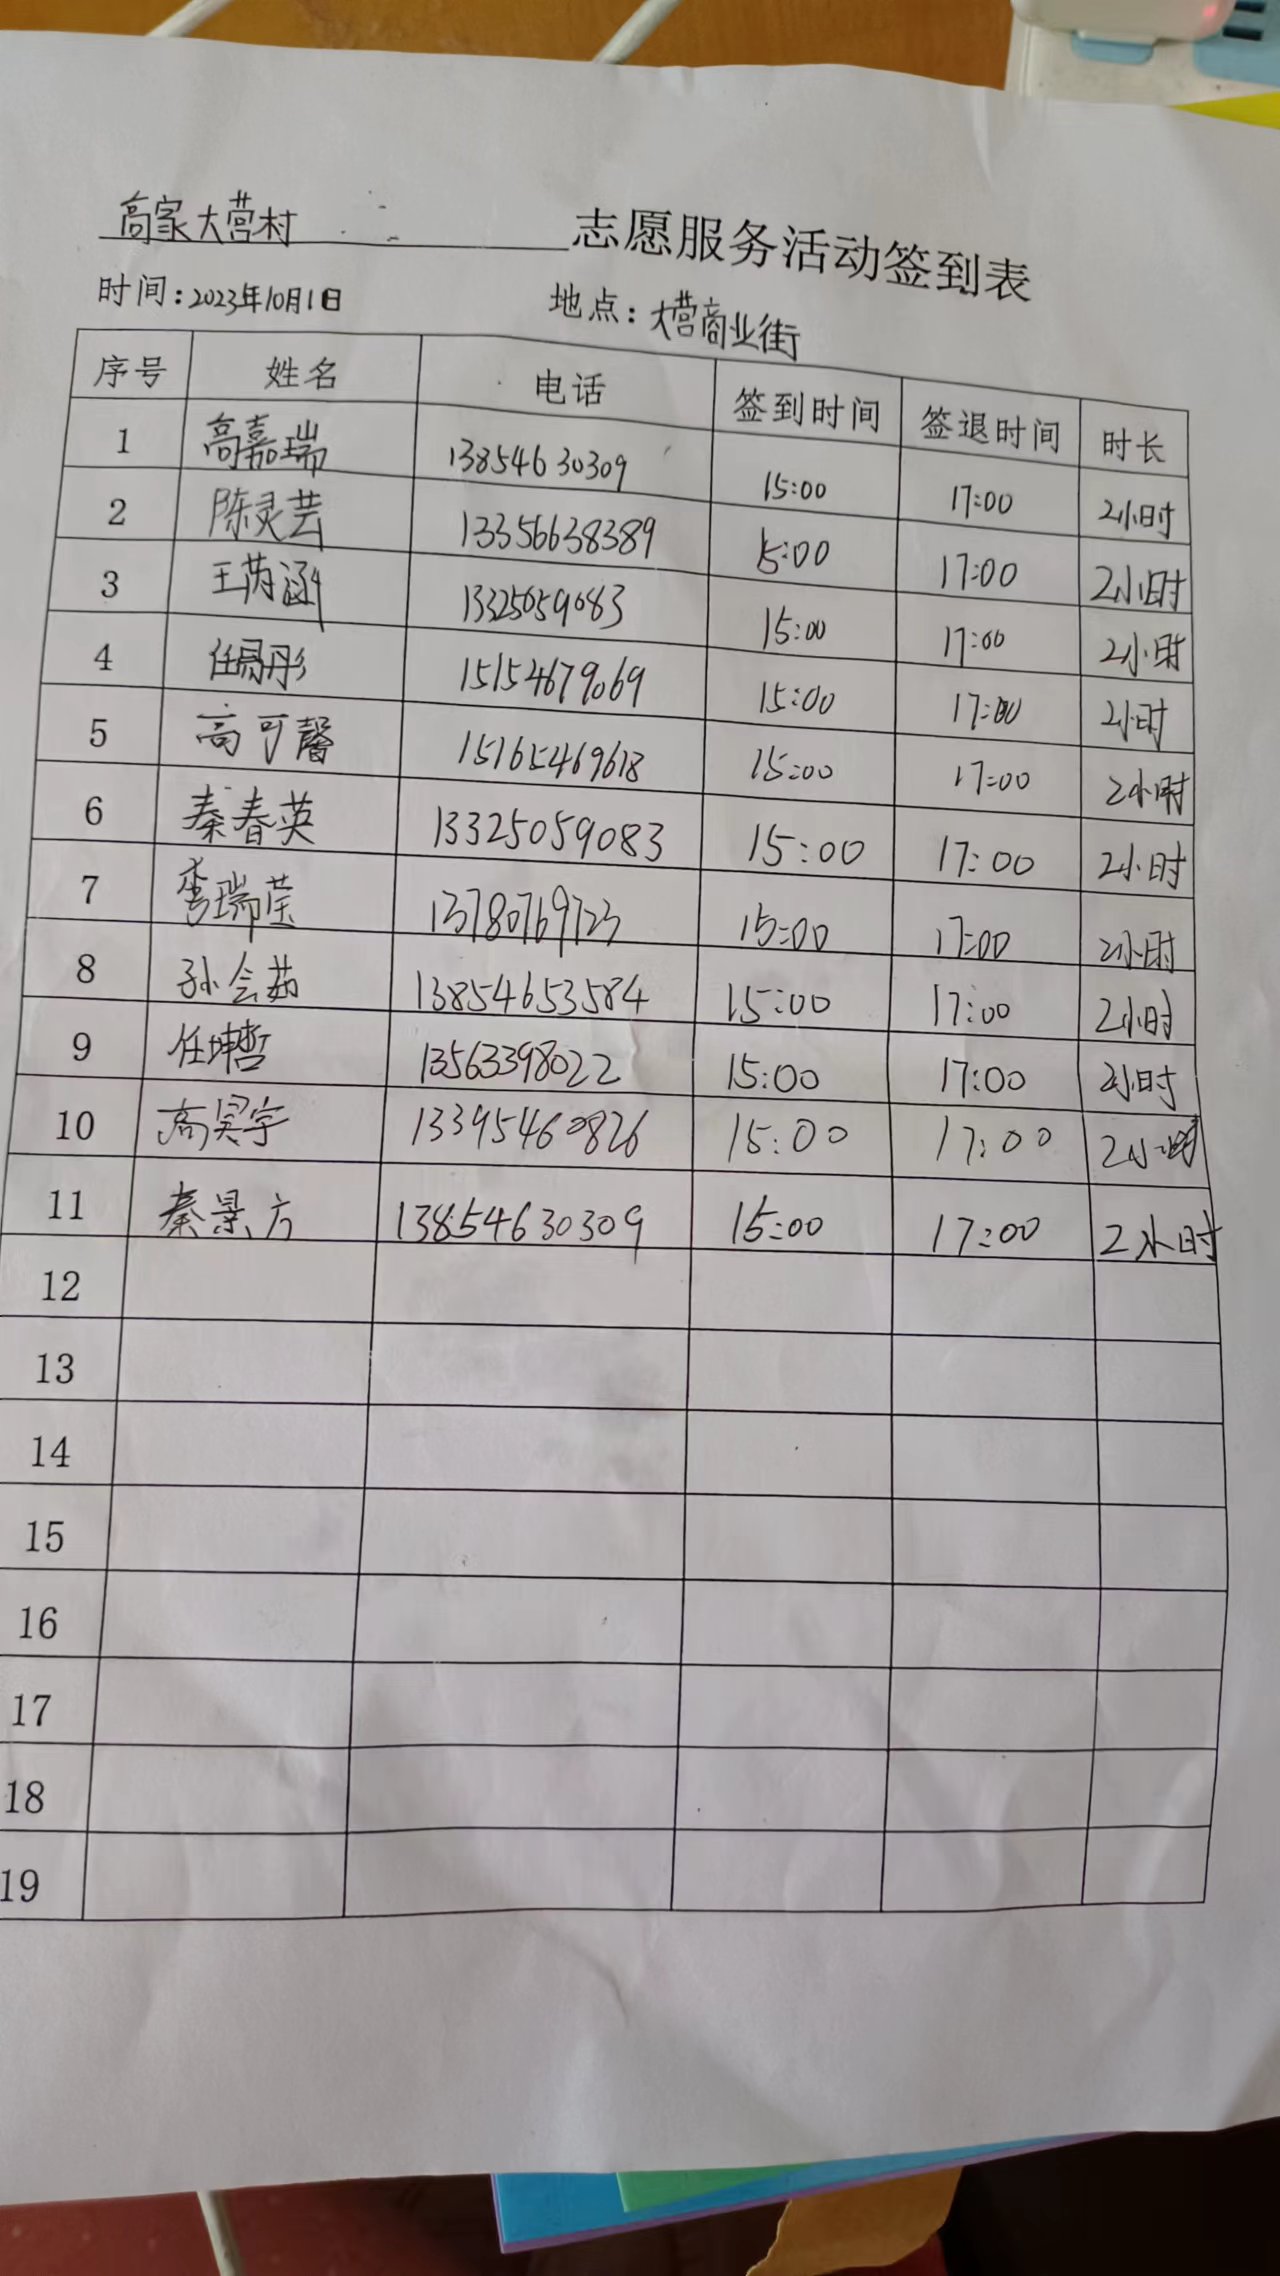 高家大营村 志愿服务活动签到表
时间：2023年10月1日 地点：大营商业街
序号 姓名 电话 签到时间 签退时间 时长
1 高嘉瑞 13854630309 15:00 17:00 2小时
2 陈灵芸 13356638389 15:00 17:00 2小时
3 王芮涵 13325059083 15:00 17:00 2小时
4 任彤 15154679069 15:00 17:00 2小时
5 高可馨 15165469618 15:00 17:00 2小时
6 秦春英 13325059083 15:00 17:00 2小时
7 李瑞莹 13780769723 15:00 17:00 2小时
8 孙会茹 13854653584 15:00 17:00 2小时
9 任坤哲 13563398022 15:00 17:00 2小时
10 高昊宇 13395460826 15:00 17:00 2小时
11 秦景方 13854630309 15:00 17:00 2小时
12
13
14
15
16
17
18
19